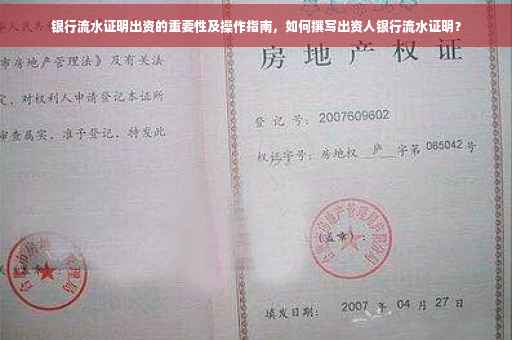 银行流水证明出资的重要性及操作指南，如何撰写出资人银行流水证明？
华人民共
市房地产管理法》及有关法
定，对权利人申请登记本证所
审查属实，准予登记，特发此
房地产权
登记号：2007609602
权证字号：房地权 庐 字第 085042 号
(盖章)：
填发日期：2007 年 04 月 27 日